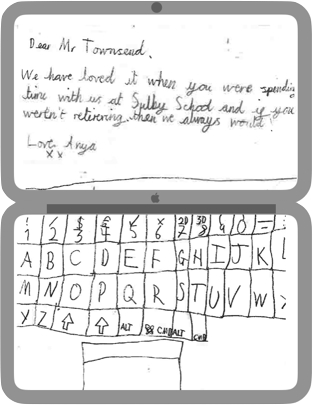 Dear Mr Townsend,
We have loved it when you were spending
time with us at Sulby School and if you
weren't retirering then we always would!
Love Anya
x x
1 2 3 4 5 6 7 8 9 0 =
A B C D E F G H I J K L
M N O P Q R S T U V W
Y Z ALT ⌘ CMD ALT CMD